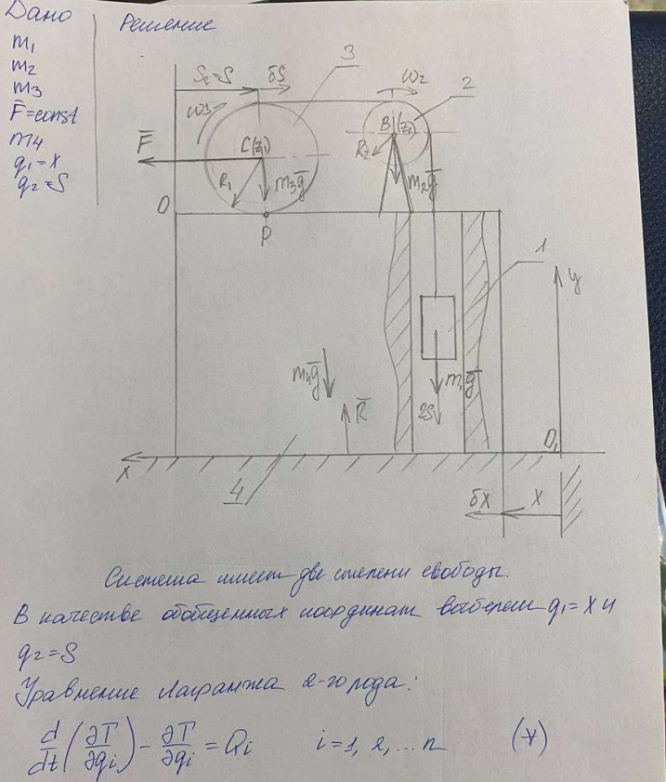 Дано
m₁
m₂
m₃
F̅=const
m₄
q₁=x
q₂=S
Решение
S_c=S
δS
3
ω₃
ω₂
2
F̅
C(z₁)
B(z₁)
R₁
R₂
m₃g̅
m₂g̅
O
P
1
y
m₄g̅
R̅
m₁g̅
2S
O₁
x
4
δx
x
Система имеет две степени свободы.
В качестве обобщенных координат выберем q₁=x и
q₂=S
Уравнение Лагранжа 2-го рода:
d/dt(∂T/∂q̇i) - ∂T/∂qi = Qi i=1, 2, ... n (*)